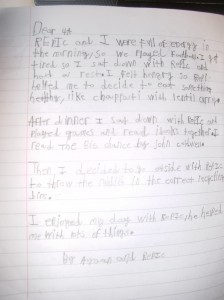 Dear us
REPIC and I were full of energy in
the morning, so we played football. I got
tired so I sat down with RePIc and
had a rest. I felt hungry so RePIc
helped me to decide to eat something
healthy, like chappati with lentil curry.
After dinner I sat down with RePIc and
played games and read books together. I
read the Big dance by John
Then I decided to go outside with RePIc
to throw the rubbish in the correct recycling
bins.
I enjoyed my day with RePIc, he helped
me with lots of things.
By and RePIc